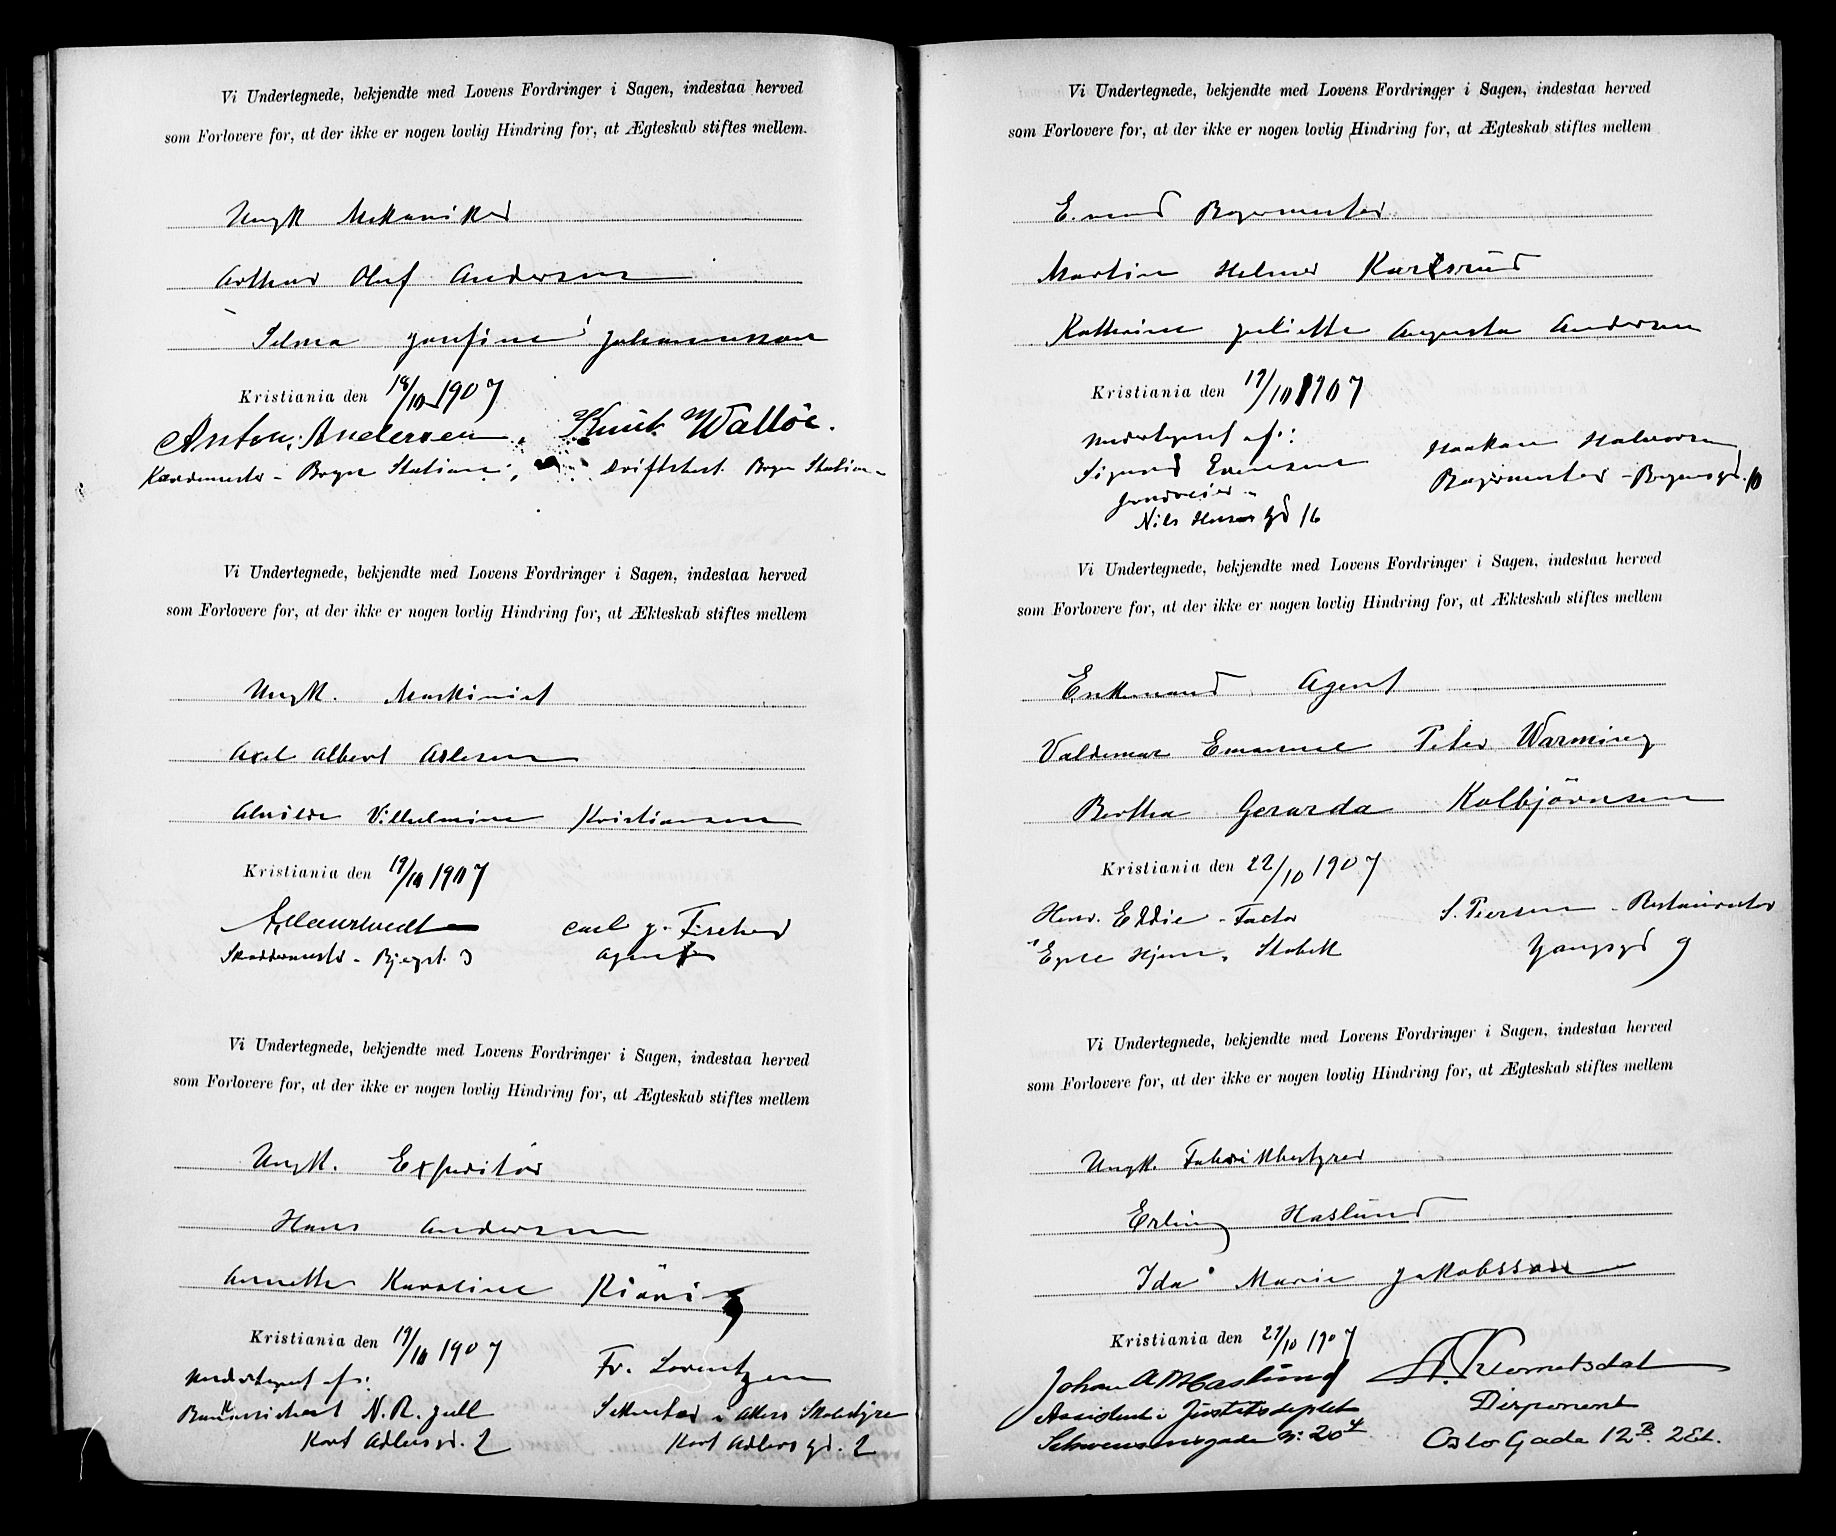 Vi Undertegnede, bekjendte med Lovens Fordringer i Sagen, indestaa herved
som Forlovere for, at der ikke er nogen lovlig Hindring for, at Ægteskab stiftes mellem.
Ungk Mekaniker
Arthur Olaf Andersen
Selma Josefine Johannesson
Kristiania den 18/10 1907
Anton Andersen, Knut Walløe.
Bryn Station; Bryn Station
Vi Undertegnede, bekjendte med Lovens Fordringer i Sagen, indestaa herved
som Forlovere for, at der ikke er nogen lovlig Hindring for, at Ækteskab stiftes mellem
Ungk. Maskinist
Axel Albert Aslesen
Alvilde Vilhelmine Kristiansen
Kristiania den 19/10 1907
Carl J. Fischer
Skreddermester - 3 Agent
Vi Undertegnede, bekjendte med Lovens Fordringer i Sagen, indestaa herved
som Forlovere for, at der ikke er nogen lovlig Hindring for, at Ægteskab stiftes mellem
Ungk. Expeditør
Hans Andersen
Annette Karoline Kiøni
Kristiania den 19/10 1907
Undertegnet af: Fr. Lorentzen
N. R. Jull Sekretær i Akers Skolestyre
Kort Adlersgd. 2 Kort Adlers gd. 2
Vi Undertegnede, bekjendte med Lovens Fordringer i Sagen, indestaa herved
som Forlovere for, at der ikke er nogen lovlig Hindring for, at Ægteskab stiftes mellem
E.mand Bagermester
Martin Helmer Karlsrud
Kathrine Juliette Augusta Andersen
Kristiania den 19/10 1907
Undertegnet af: Haakon Halvorsen
Sigurd Evensen Bagermester -
Gaardeier -
Nils Huus gd 16
Vi Undertegnede, bekjendte med Lovens Fordringer i Sagen, indestaa herved
som Forlovere for, at der ikke er nogen lovlig Hindring for, at Ækteskab stiftes mellem
Enkemand Agent
Valdemar Emanuel Peter Warming
Bertha Gerarda Kolbjørnsen
Kristiania den 22/10 1907
Henr. Eddie - Factor S. Piersen - Restauratør
Eget Hjem, Stabek 9
Vi Undertegnede, bekjendte med Lovens Fordringer i Sagen, indestaa herved
som Forlovere for, at der ikke er nogen lovlig Hindring for, at Ægteskab stiftes mellem
Ungk. Fabrikbestyrer
Erling Haslund
Ida Marie Jakobsson
Kristiania den 21/10 1907
Johan A M Haslund
Assistent i Justitsdeptet Disponent
Schwensensgade N: 20 Oslo Gade 12 B. 2 Et.